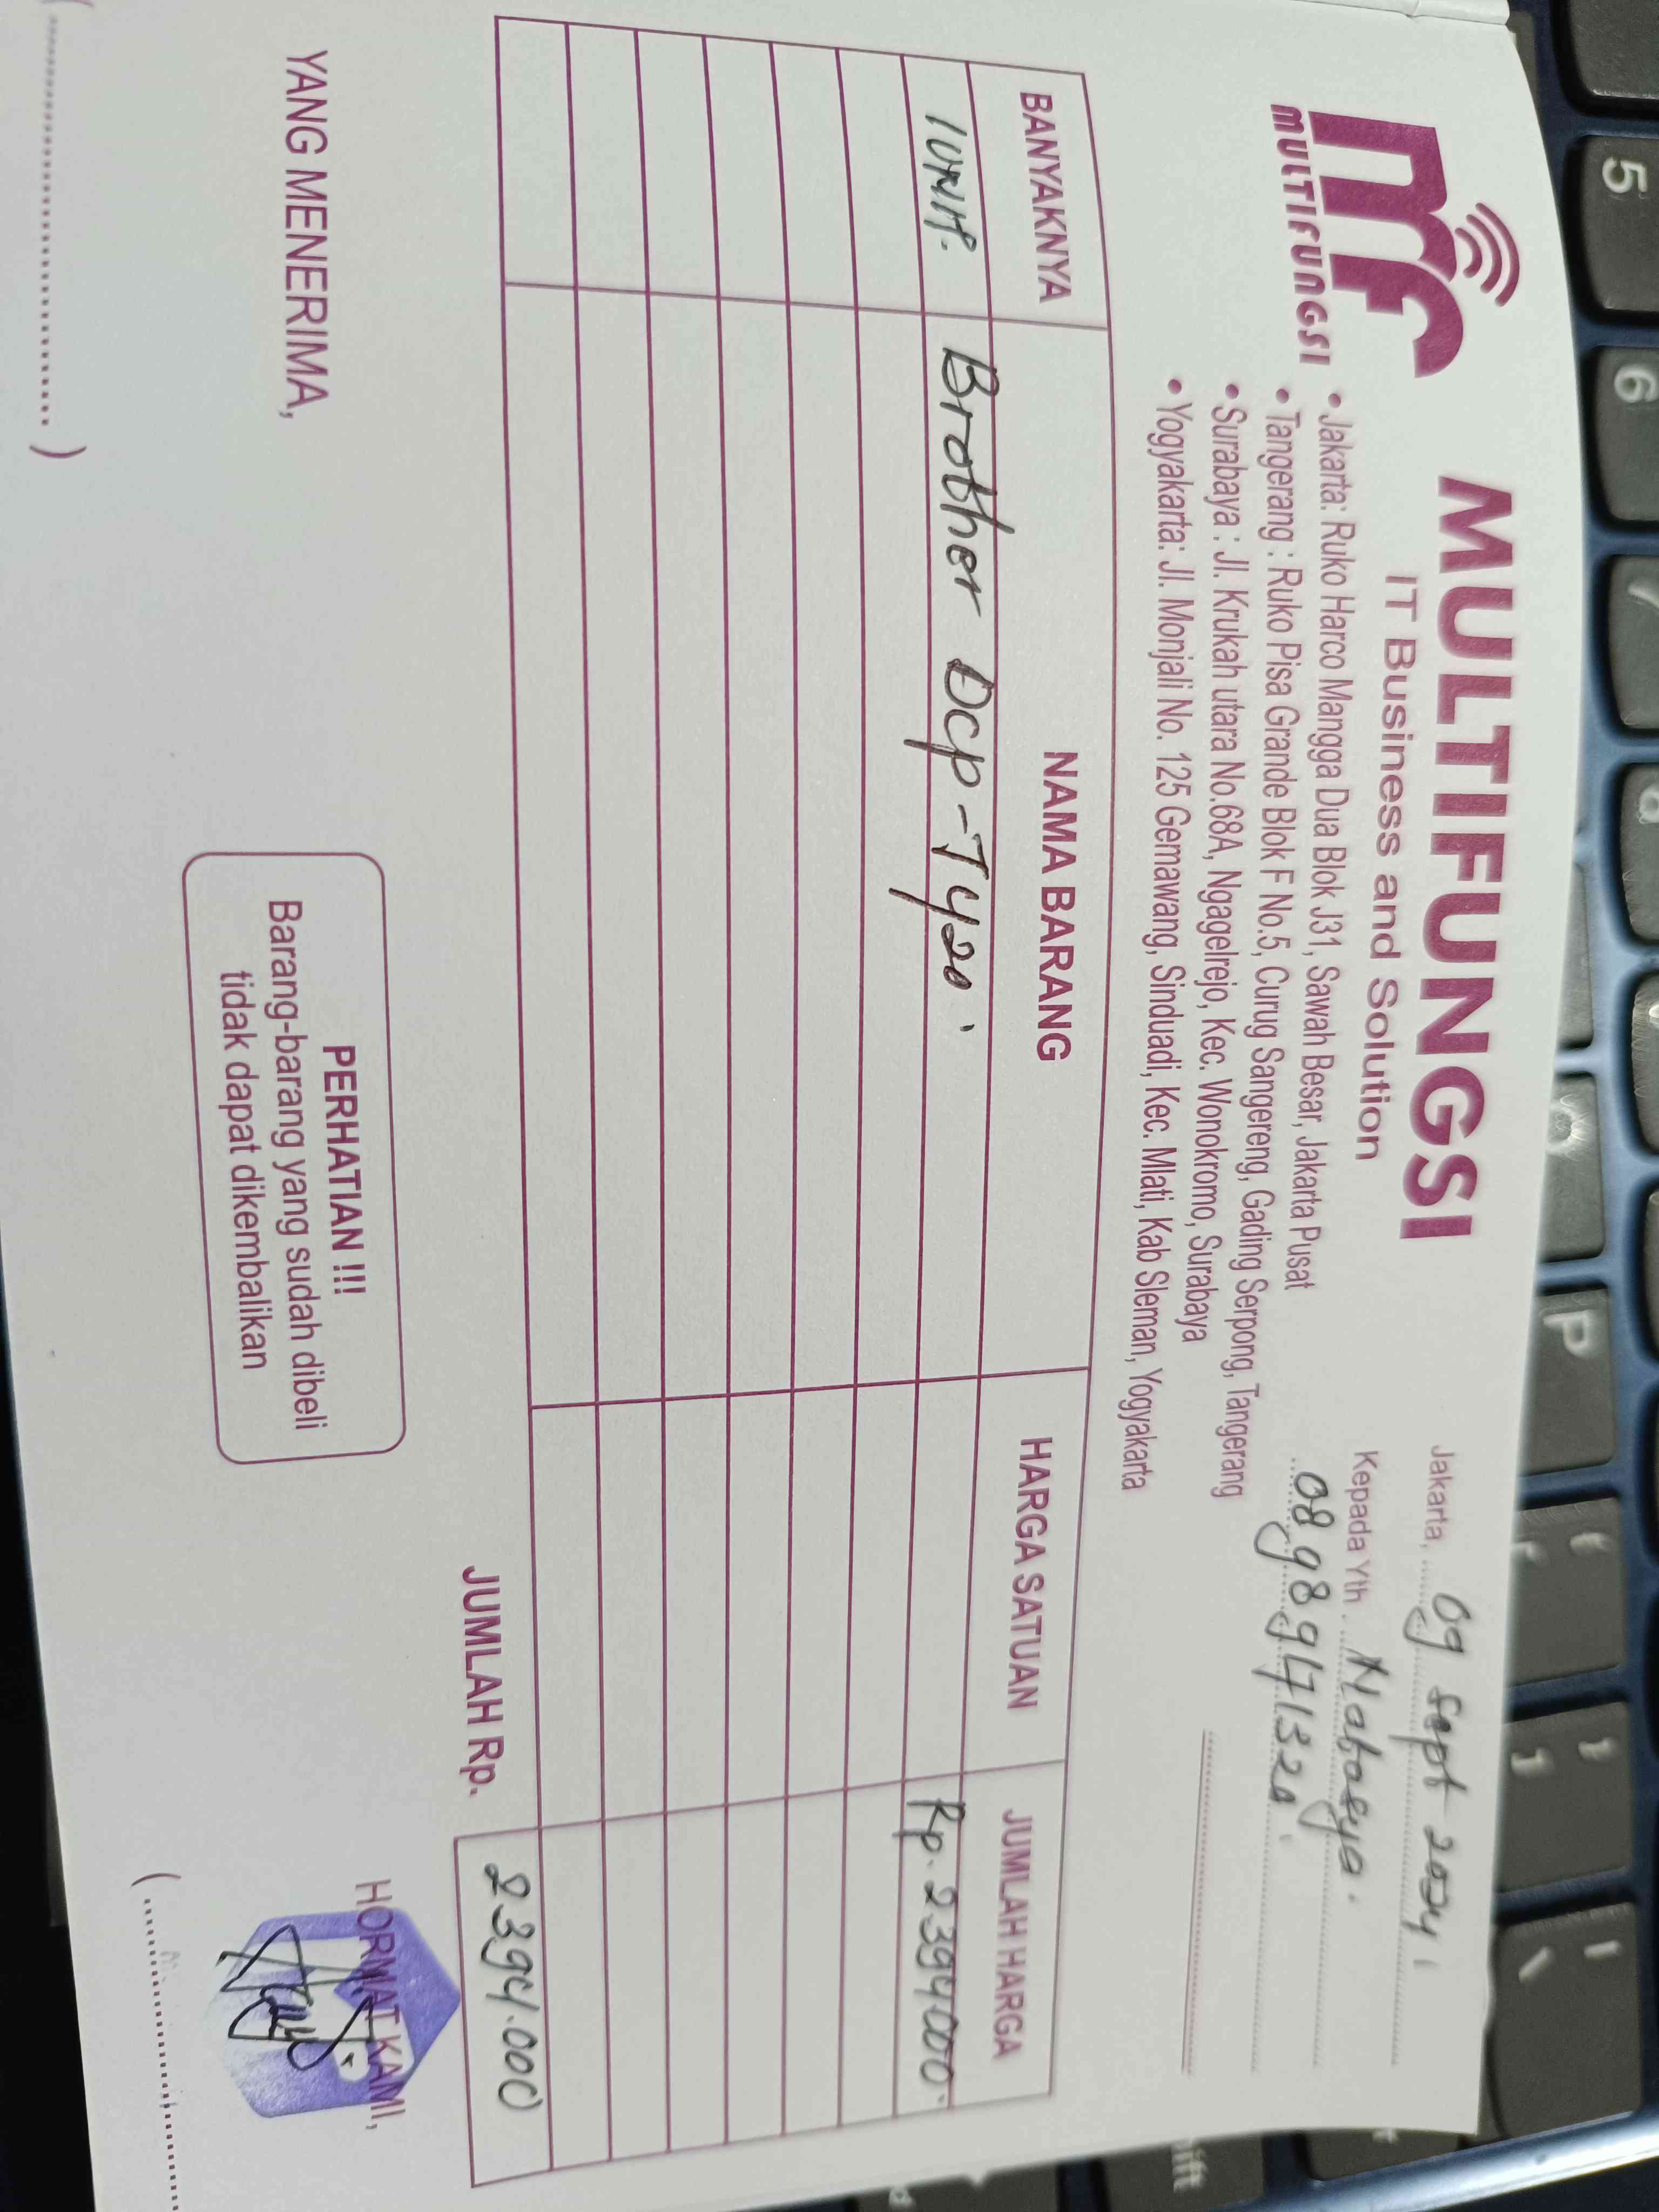 MULTIFUNGSI
MULTIFUNGSI
IT Business and Solution
• Jakarta: Ruko Harco Mangga Dua Blok J31, Sawah Besar, Jakarta Pusat
• Tangerang : Ruko Pisa Grande Blok F No.5, Curug Sangereng, Gading Serpong, Tangerang
• Surabaya : Jl. Krukah utara No.68A, Ngagelrejo, Kec. Wonokromo, Surabaya
• Yogyakarta: Jl. Monjali No. 125 Gemawang, Sinduadi, Kec. Mlati, Kab Sleman, Yogyakarta
Jakarta, 09 Sept 2024
Kepada Yth.
BANYAKNYA NAMA BARANG HARGA SATUAN JUMLAH HARGA
1 unit. Brother Dcp-T420 Rp. 2394000
JUMLAH Rp. 2394.000
YANG MENERIMA,
PERHATIAN !!!
Barang-barang yang sudah dibeli
tidak dapat dikembalikan
HORMAT KAMI,
5
6
P